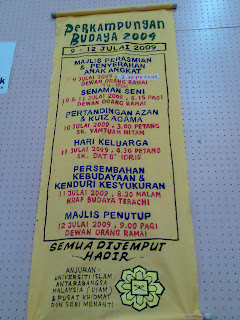 PERKAMPUNGAN
BUDAYA 2009
9 - 12 JULAI 2009
MAJLIS PERASMIAN
& PENYERAHAN
ANAK ANGKAT
9 JULAI 2009, 2.30 PETANG
DEWAN ORANG RAMAI
SENAMAN SENI
10 & 11 JULAI 2009, 8.15 PAGI
DEWAN ORANG RAMAI
PERTANDINGAN AZAN
& KUIZ AGAMA
10 JULAI 2009, 3.00 PETANG
SK. YAMTUAN HITAM
HARI KELUARGA
11 JULAI 2009, 4.30 PETANG
SK. DATO' IDRIS
PERSEMBAHAN
KEBUDAYAAN &
KENDURI KESYUKURAN
11 JULAI 2009, 8.30 MALAM
KRAF BUDAYA TERACHI
MAJLIS PENUTUP
12 JULAI 2009, 9.00 PAGI
DEWAN ORANG RAMAI
SEMUA DIJEMPUT
HADIR
ANJURAN:
UNIVERSITI ISLAM
ANTARABANGSA
MALAYSIA (UIAM)
& PUSAT KHIDMAT
DUN SERI MENANTI